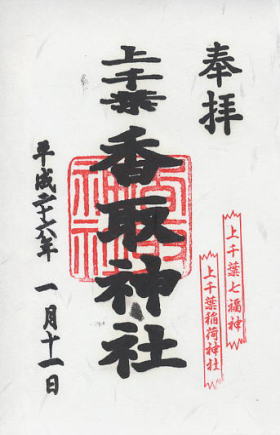 奉拝
上千葉七福神
上千葉稲荷神社
上千葉
香取神社
平成二十六年 一月十一日